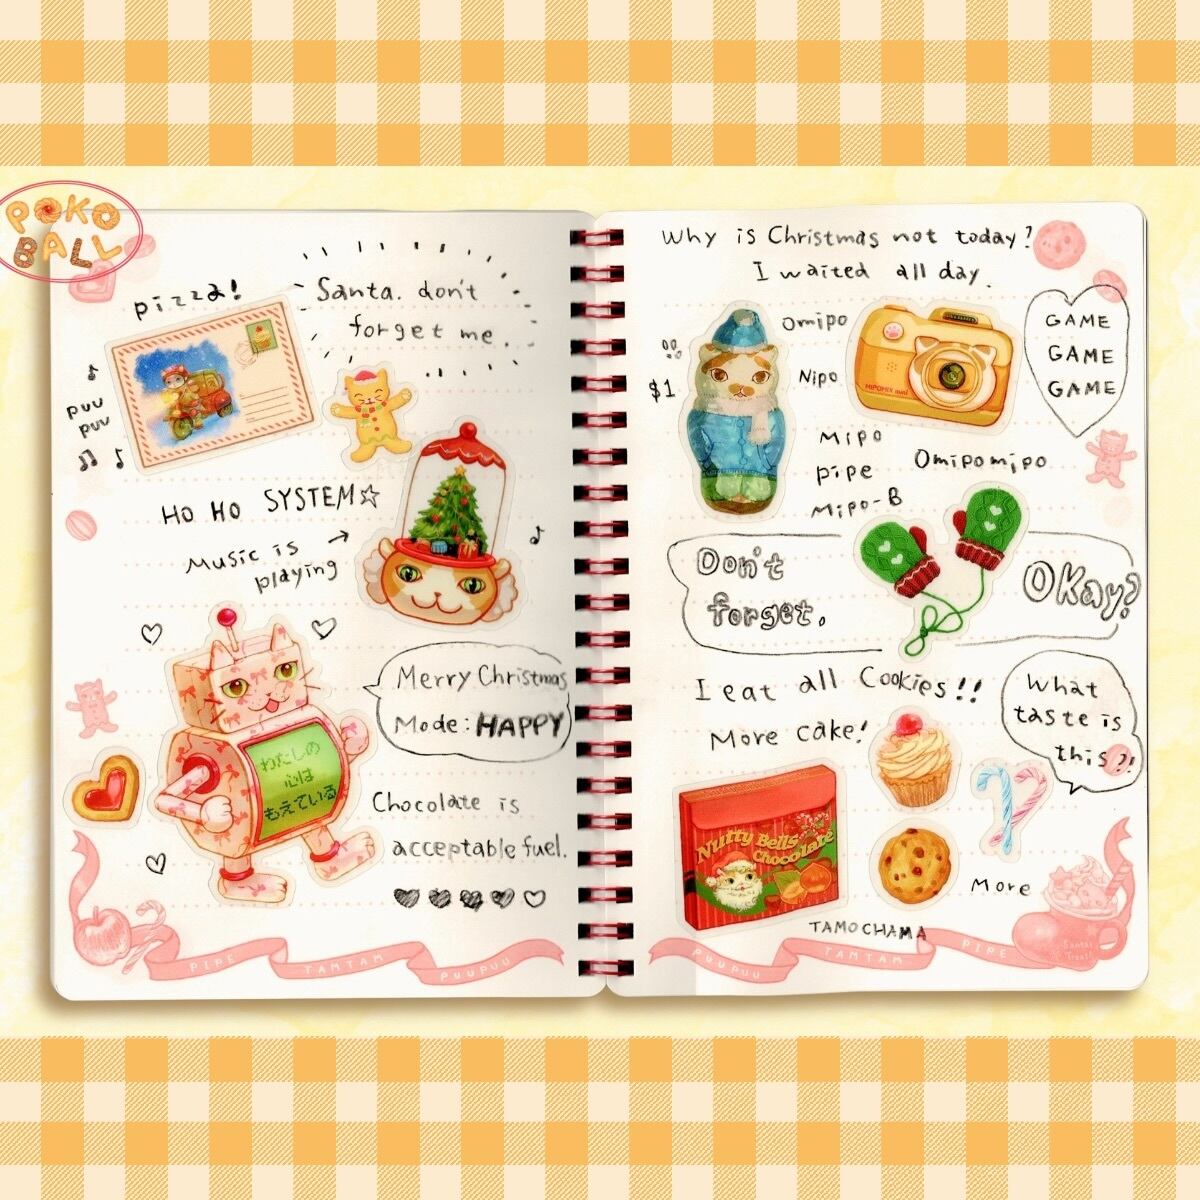 POKO
BALL
pizza!
Santa. don't
forget me.
puu
puu
HO HO SYSTEM☆
Music is
playing
Merry Christmas
Mode: HAPPY
わたしの
心は
もえている
Chocolate is
acceptable fuel.
PIPE TAMTAM PUUPUU
Why is Christmas not today?
I waited all day.
$1
Omipo
Nipo
MIPOMIX mini
GAME
GAME
GAME
Mipo
pipe
Mipo-B
Omipomipo
Don't
forget.
OKay?
I eat all Cookies!!
More cake!
What
taste is
this?!
Nutty Bells
Chocolate
More
TAMOCHAMA
PUUPUU TAMTAM PIPE